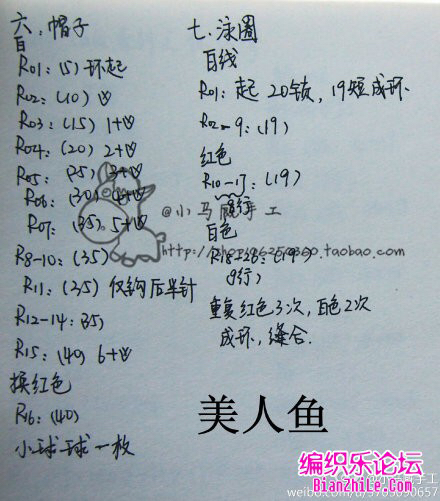 六、帽子
白
R01：(5) 环起
R02：(10) W
R03：(15) 1+W
R04：(20) 2+W
R05：(25) 3+W
R06：(30) 4+W
R07：(35) 5+W
R8-10：(35)
R11：(35) 仅钩后半针
R12-14：35)
R15：(40) 6+W
换红色
R16：(40)
小球球一枚
七、泳圈
白线
R01：起20锁，19短成环
R02-9：(19)
红色
R10-17：(19)
8行
白色
(19)
9行)
重复红色3次，白色2次
成环，缝合.
@小马
手工
.taobao.com
美人鱼
编织乐论坛
BianZhiLe.Com
手工
weibo.com/u/3703090657